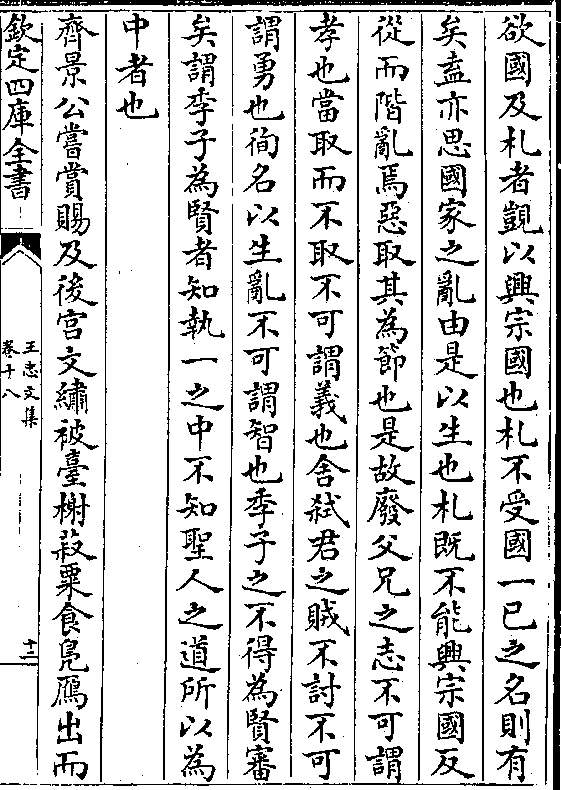 欲國及札者覬以興宗國也札不受國一已之名則有
矣盍亦思國家之亂由是以生也札既不能興宗國反
從而階亂焉惡取其為節也是故廢父兄之志不可謂
孝也當取而不取不可謂義也舍弑君之賊不討不可
謂勇也徇名以生亂不可謂智也季子之不得為賢審
矣謂季子為賢者知執一之中不知聖人之道所以為
中者也
齊景公嘗賞賜及後宫文繡被臺榭菽粟食鳬鴈出而
欽定四庫全書
王忠文集
卷十八
十二